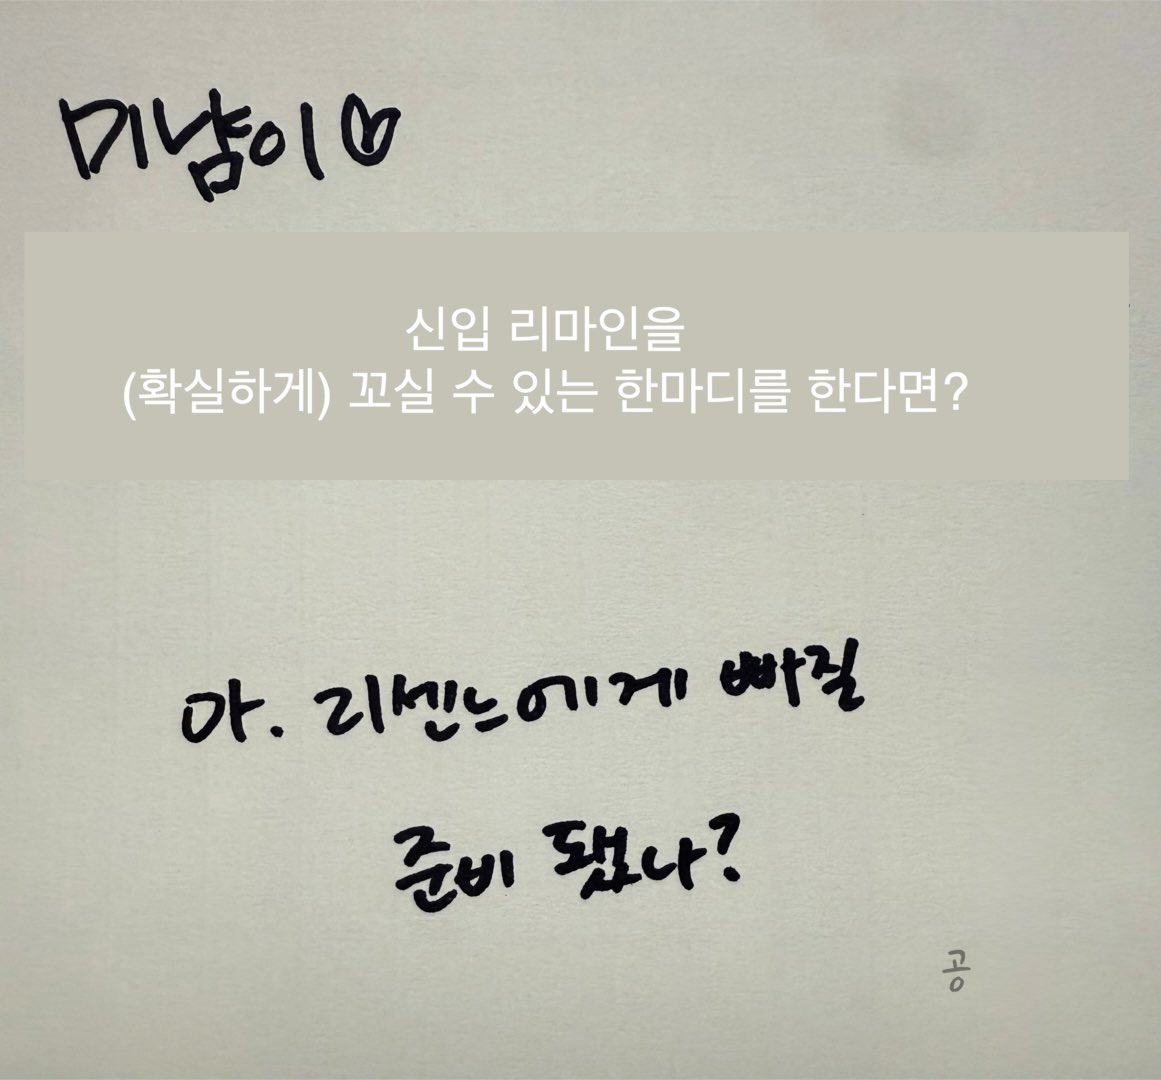 미냠이♡
신입 리마인을
(확실하게) 꼬실 수 있는 한마디를 한다면?
아. 리센느에게 빠질
준비 됐나?
공